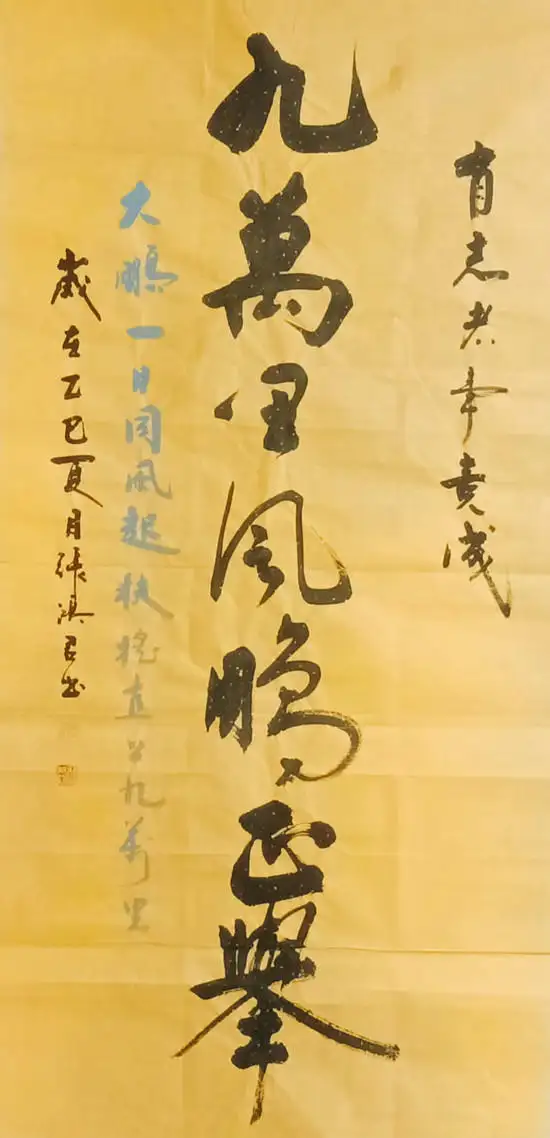 有志者事竟成
九萬里風鵬正舉
大鵬一日同風起扶搖直上九萬里
歲在乙巳夏月張君書